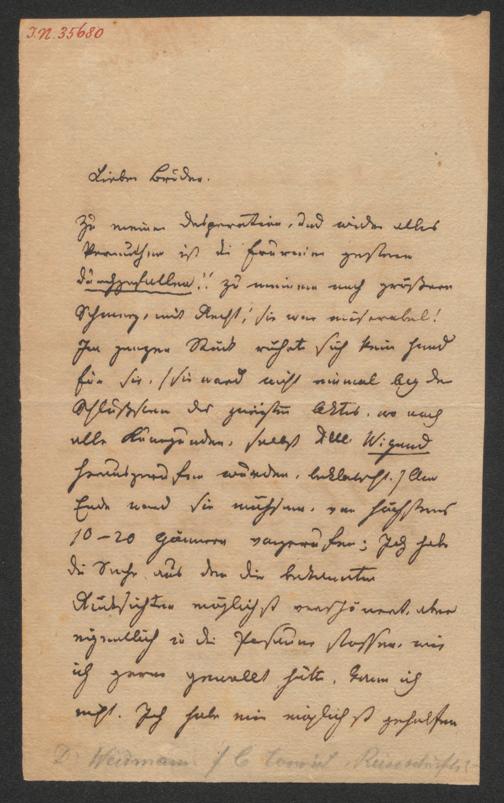 I.N. 35680
Lieber Bruder.
Zu meiner Desperation, und wider alles
Vermuthen ist die Fournier gestern
durchgefallen!! zu meinem noch größern
Schmerz, mit Recht! sie war miserabel!
Im ganzen Stück rührte sich keine Hand
für sie, (sie ward nicht einmal bey der
Schlußscene des zweiten Aktes, wo noch
alle Künste, selbst Dlle Wigand
herausgerufen wurden, beklatscht.) Am
Ende ward sie mühsam, von höchstens
10-20 Gönnern vorgerufen; Ich habe
die Sache aus den dir bekannten
Rücksichten möglichst verschönert, aber
eigentlich in die Posaune stossen, wie
ich gerne gewollt hätte, kann ich
nicht. Ich habe mir möglichst geholfen
D. Weidmann, J C